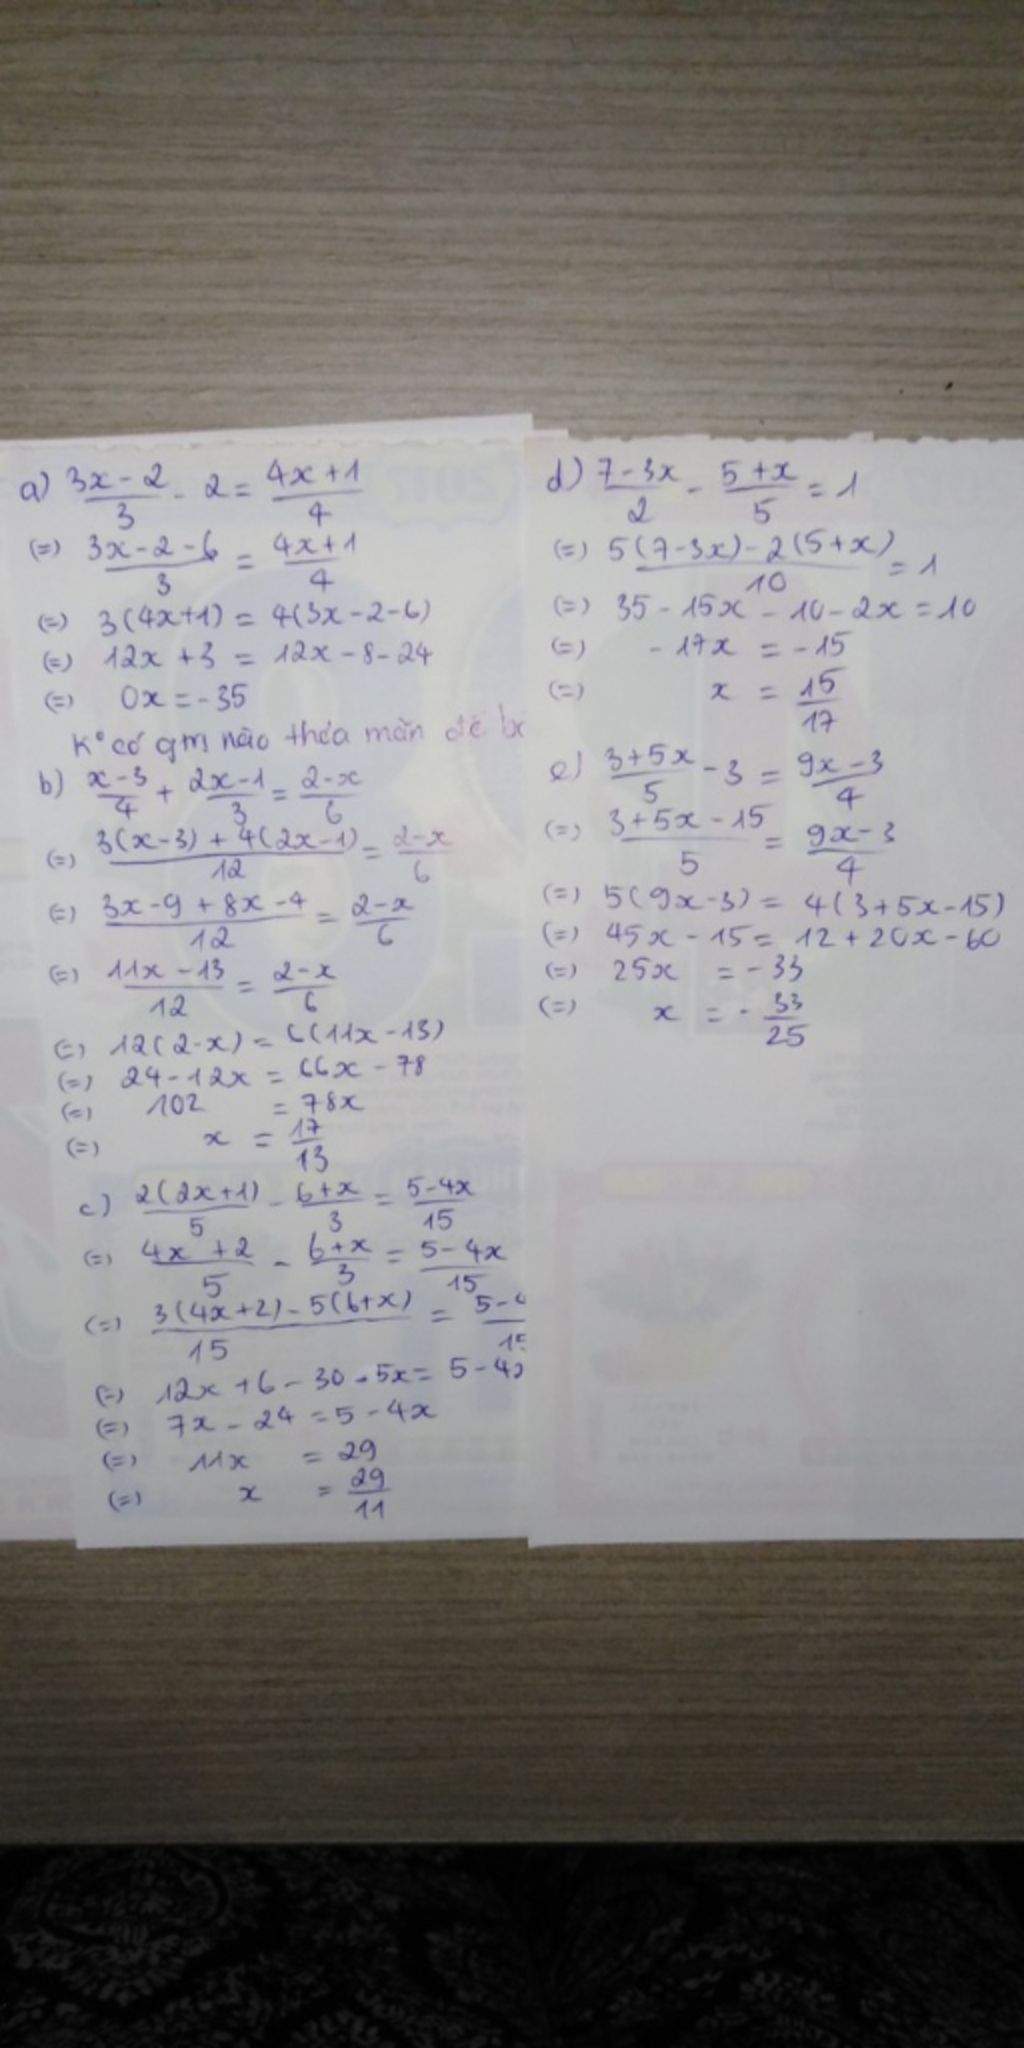 a) (3x - 2)/3 - 2 = (4x + 1)/4
(=) (3x - 2 - 6)/3 = (4x + 1)/4
(=) 3(4x+1) = 4(3x - 2 - 6)
(=) 12x + 3 = 12x - 8 - 24
(=) 0x = -35
K° có gm nào thỏa mãn đề
b) (x - 3)/4 + (2x - 1)/3 = (2 - x)/6
(=) (3(x - 3) + 4(2x - 1))/12 = (2 - x)/6
(=) (3x - 9 + 8x - 4)/12 = (2 - x)/6
(=) (11x - 13)/12 = (2 - x)/6
(=) 12(2 - x) = 6(11x - 13)
(=) 24 - 12x = 66x - 78
(=) 102 = 78x
(=) x = 17/13
c) 2(2x+1)/5 - (6+x)/3 = (5-4x)/15
(=) (4x + 2)/5 - (6+x)/3 = (5 - 4x)/15
(=) (3(4x+2) - 5(6+x))/15 = (5-4/15
(=) 12x + 6 - 30 - 5x = 5 - 4x
(=) 7x - 24 = 5 - 4x
(=) 11x = 29
(=) x = 29/11
d) (7 - 3x)/2 - (5 + x)/5 = 1
(=) (5(7-3x) - 2(5+x))/10 = 1
(=) 35 - 15x - 10 - 2x = 10
(=) -17x = -15
(=) x = 15/17
e) (3+5x)/5 - 3 = (9x - 3)/4
(=) (3+5x - 15)/5 = (9x - 3)/4
(=) 5(9x-3) = 4(3+5x-15)
(=) 45x - 15 = 12 + 20x - 60
(=) 25x = -33
(=) x = -33/25